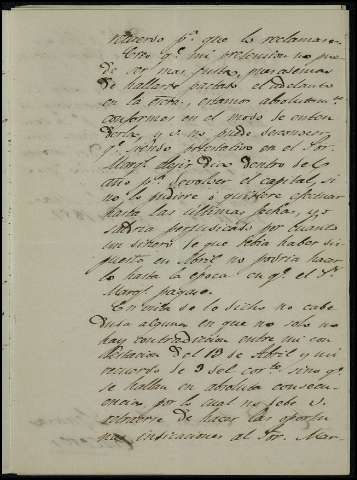 recuerdo pª que lo reclamara.
Creo qᵉ mi pretension no pue-
de ser mas justa, pues ademas
de hallarse pactado el adelanto
en la Escra, estamos absolutamte
conformes en el modo de enten-
derla, y V. no puede desconocer
qᵉ siendo potestativo en el Sor.
Marql elejir dia dentro de
año pª devolver el capital, si
no lo pidiere ó quisiere efectuar
hasta las ultimas fechas, yo
saldria perjudicado por cuanto
un dinero de que debia haber dis-
puesto en Abril no podria hacer
lo hasta la época en qᵉ el Sr.
Marql pague.
En vista de lo dicho no cabe
duda alguna en que no solo no
hay contradiccion entre mi con
testacion del 13 de Abril y mi
recuerdo de 9 del corte, sino qᵉ
se hallan en absoluta consecu-
encia, por lo cual no debe V.
retraerse de hacer las oportu-
nas indicaciones al Sor. Mar-